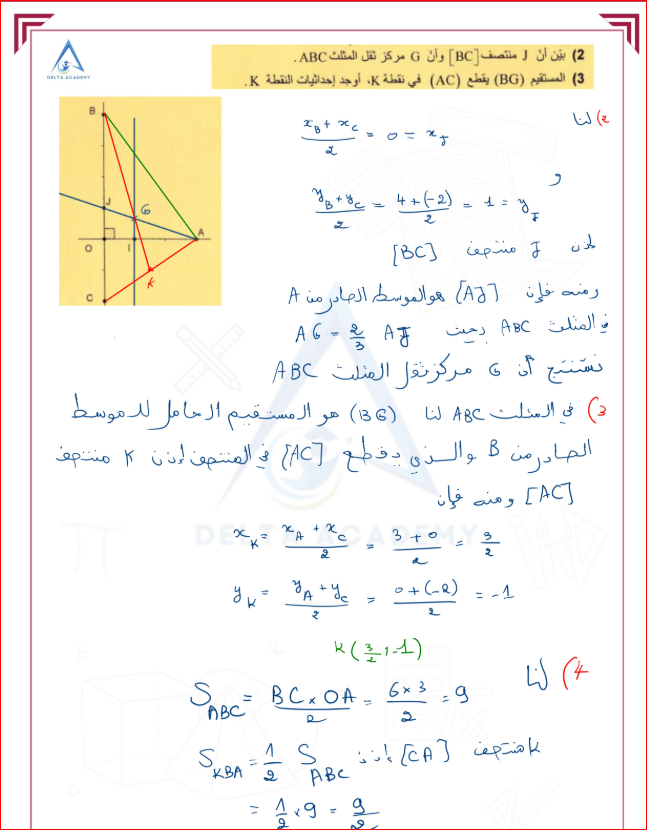 DELTA ACADEMY
2) بيّن أنّ J منتصف [BC] وأنّ G مركز ثقل المثلث ABC.
3) المستقيم (BG) يقطع (AC) في نقطة K، أوجد إحداثيات النقطة K.
B
J
G
A
O
I
K
C
2) لنا
(x_B + x_C)/2 = 0 = x_J
و
(y_B + y_C)/2 = (4+(-2))/2 = 1 = y_J
إذن J منتصف [BC]
ومنه فإن [AJ] هو الموسط الصادر من A
في المثلث ABC بحيث AG = 2/3 AJ
نستنتج أن G مركز ثقل المثلث ABC
3) في المثلث ABC لنا (BG) هو المستقيم الحامل للموسط
الصادر من B والذي يقطع [AC] في المنتصف إذن K منتصف
[AC] ومنه فإن
DELTA ACADEMY
x_K = (x_A + x_C)/2 = (3+0)/2 = 3/2
y_K = (y_A + y_C)/2 = (0+(-2))/2 = -1
K(3/2, -1)
4) لنا
S_ABC = (BC × OA)/2 = (6×3)/2 = 9
K منتصف [CA] إذن S_KBA = 1/2 S_ABC
= 1/2 × 9 = 9/2